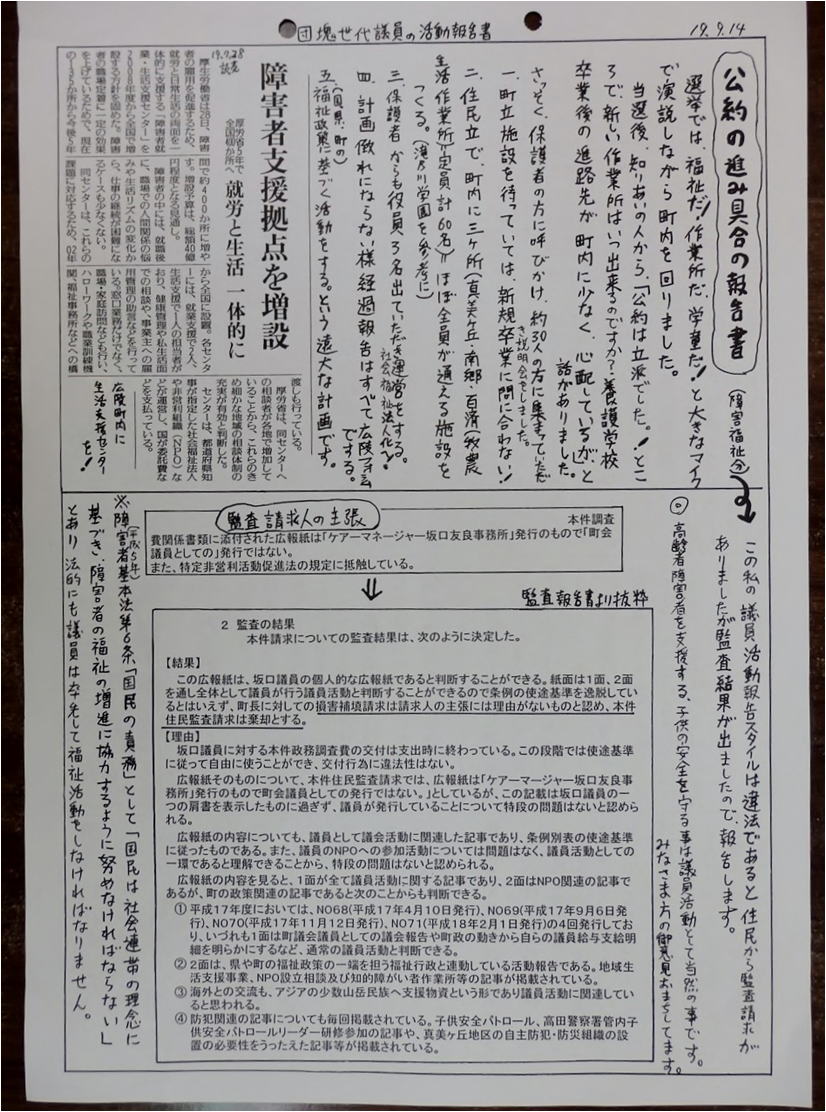 団塊世代議員の活動報告書
19.9.14
公約の進み具合の報告書
(障害福祉分)
選挙では、福祉だ!作業所だ、学童だ!と大きなマイク
で演説しながら町内を回りました。
当選後、知りあいの人から、「公約は立派でした。!とこ
ろで、新しい作業所はいつ出来るのですか?養護学校
卒業後の進路先が町内に少なく、心配しているが」と
話がありました。
さっそく、保護者の方に呼びかけ、約30人の方に集まっていただ
き説明会をしました。
一、町立施設を待っていては、新規卒業に間に合わない!
二、住民立で、町内に三ヶ所(真美ヶ丘・南郷・百済(牧農
生活作業所)=定員計60名)=ほぼ全員が通える施設を
つくる。(滝乃川学園を参考に)
三、保護者からも役員3名出ていただき運営をする。
社会福祉法人化へ
四、計画倒れにならない様経過報告はすべて広陵フォラム
でする。
(国県、町の)
五、福祉政策に基づく活動をする。という遠大な計画です。
19.7.28
読売
障害者支援拠点を増設
厚労省5年で
全国400か所へ
就労と生活 一体的に
厚生労働省は28日、障害
者の雇用を促進するため、
就労と日常生活の両面を一
体的に支援する「障害者就
業・生活支援センター」を
2008年度から全国で増
設する方針を固めた。障害
者の職場定着に一定の効果
を上げているためで、現在
の135か所から今後5年
間で約400か所に増や
す。増設予算は、総額40億
円程度となる見通し。
障害者の中には、就職後
に、職場での人間関係の悩
みや生活リズムの変化か
ら、仕事の継続が困難にな
るケースも少なくない。
同センターは、これらの
課題に対応するため、02年
から全国に設置。各センタ
ーには、就業支援で2人、
生活支援で1人の担当者が
おり、健康管理や私生活面
での相談や、事業主への雇
用管理の助言などを行って
いる。窓口業務だけでなく、
職場・家庭訪問なども行い、
ハローワークや職業訓練機
関、福祉事務所などへの橋
渡しも行っている。
厚労省は、同センターへ
の相談者が各地で増加して
いることから、これらのき
め細かな地域の相談体制の
充実が有効と判断した。
センターは、都道府県知
事が指定した社会福祉法人
や非営利組織(NPO)な
どが運営し、国が委託費な
どを支払っている。
広陵町内に
生活支援センター
を!
この私の議員活動報告スタイルは違法であると住民から監査請求が
ありましたが監査結果が出ましたので、報告します。
◎高齢者障害者を支援する、子供の安全を守る事は議員活動として当然の事です。
みなさま方の御意見おまちしてます。
監査請求人の主張
本件調査
費関係書類に添付された広報紙は「ケアーマネージャー坂口友良事務所」発行のもので「町会
議員としての」発行ではない。
また、特定非営利活動促進法の規定に抵触している。
⇓
監査報告書より抜粋
2 監査の結果
本件請求についての監査結果は、次のように決定した。
【結果】
この広報紙は、坂口議員の個人的な広報紙であると判断することができる。紙面は1面、2面
を通し全体として議員が行う議員活動と判断することができるので条例の使途基準を逸脱してい
るとはいえず、町長に対しての損害補填請求は請求人の主張には理由がないものと認め、本件
住民監査請求は棄却とする。
【理由】
坂口議員に対する本件政務調査費の交付は支出時に終わっている。この段階では使途基準
に従って自由に使うことができ、交付行為に違法性はない。
広報紙そのものについて、本件住民監査請求では、広報紙は「ケアーマージャー坂口友良事
務所」発行のもので町会議員としての発行ではない。」としているが、この記載は坂口議員の一
つの肩書を表示したものに過ぎず、議員が発行していることについて特段の問題はないと認めら
れる。
広報紙の内容についても、議員として議会活動に関連した記事であり、条例別表の使途基準
に従ったものである。また、議員のNPOへの参加活動については問題はなく、議員活動としての
一環であると理解できることから、特段の問題はないと認められる。
広報紙の内容を見ると、1面が全て議員活動に関する記事であり、2面はNPO関連の記事で
あるが、町の政策関連の記事であると次のことからも判断できる。
① 平成17年度においては、NO68(平成17年4月10日発行)、NO69(平成17年9月6日発
行)、NO70(平成17年11月12日発行)、NO71(平成18年2月1日発行)の4回発行してお
り、いづれも1面は町議会議員としての議会報告や町政の動きから自らの議員給与支給明
細を明らかにするなど、通常の議員活動と判断できる。
② 2面は、県や町の福祉政策の一端を担う福祉行政と連動している活動報告である。地域生
活支援事業、NPO設立相談及び知的障がい者作業所等の記事が掲載されている。
③ 海外との交流も、アジアの少数山岳民族へ支援物資という形であり議員活動に関連してい
ると思われる。
④ 防犯関連の記事についても毎回掲載されている。子供安全パトロール、高田警察署管内子
供安全パトロールリーダー研修参加の記事や、真美ヶ丘地区の自主防犯・防災組織の設
置の必要性をうったえた記事等が掲載されている。
(平成5年)
※障害者基本法第6条「国民の責務」として「国民は社会連帯の理念に
基づき、障害者の福祉の増進に協力するように努めなければならない」
とあり法的にも議員は率先して福祉活動をしなければなりません。